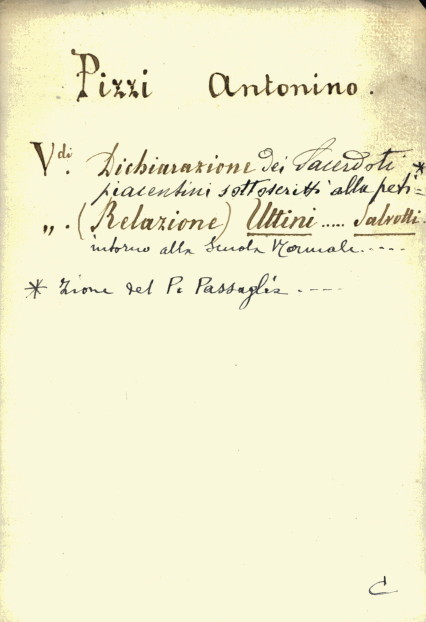 Pizzi Antonino.
Vdi. Dichiarazione dei Sacerdoti *
piacentini sottoscritti alla peti=
„. (Relazione) Uttini ..... Salvotti
intorno alla Scuola Normale.....
* zione del P. Passaglia .----
C